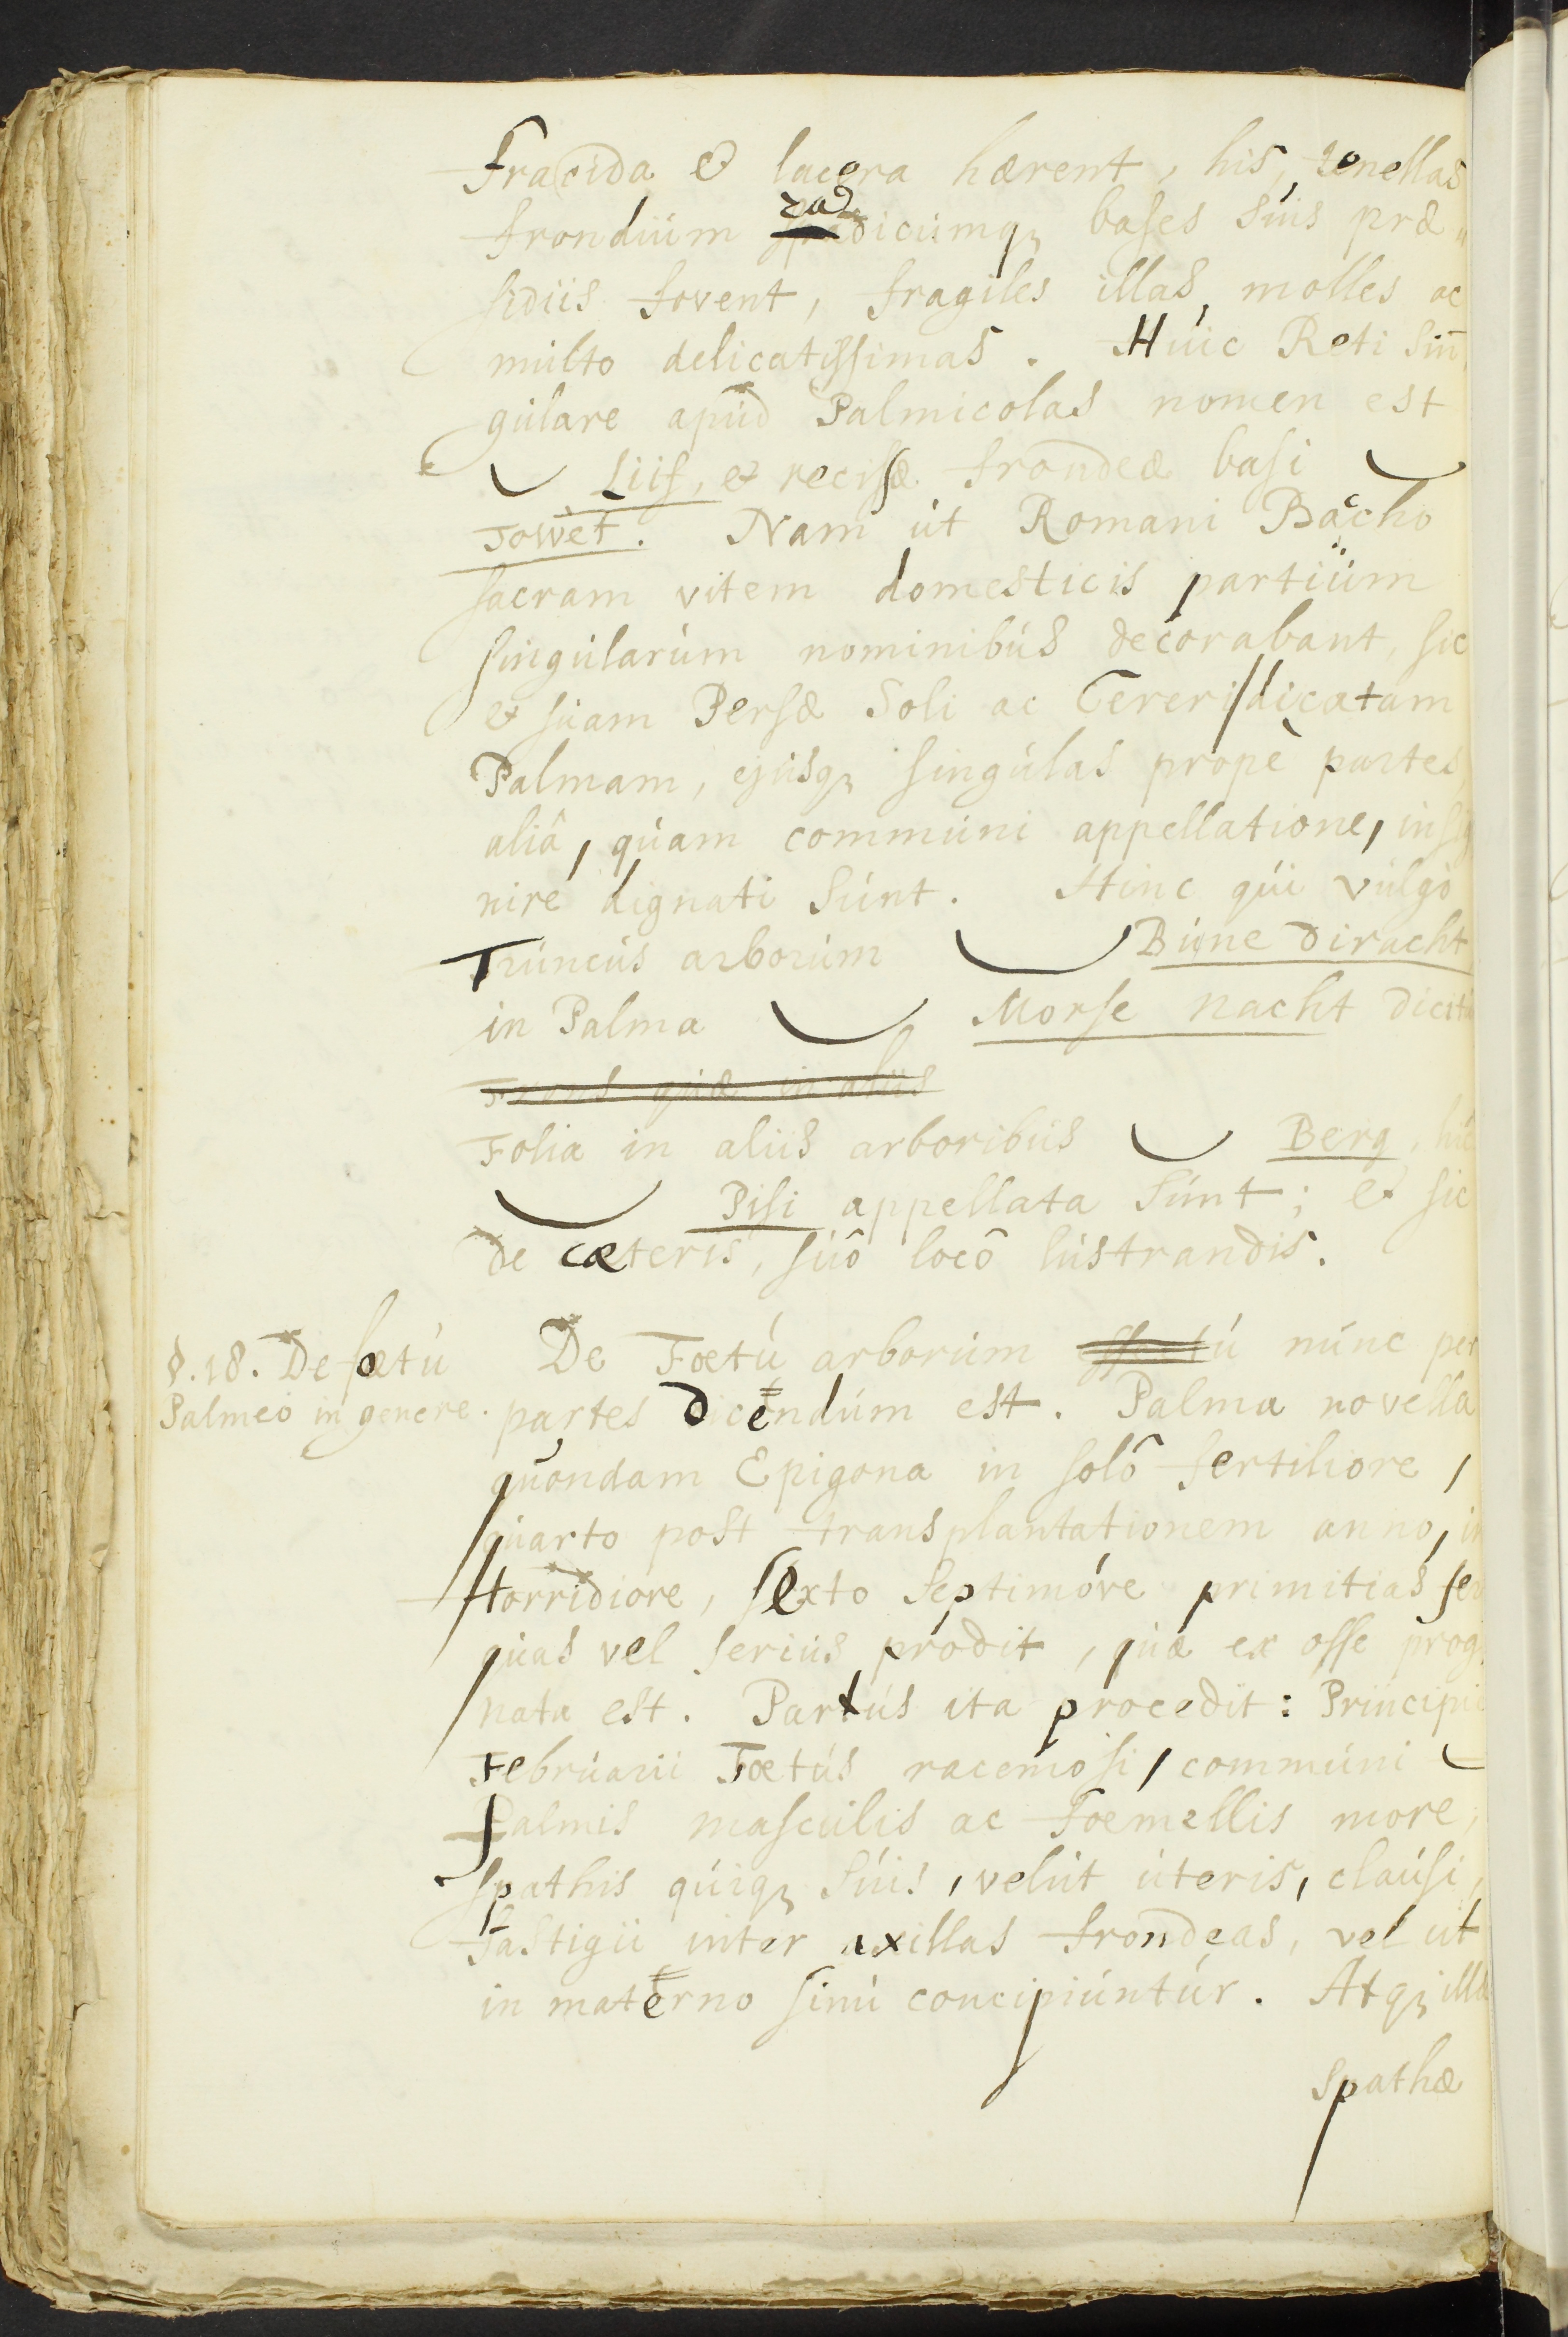 Fracida & lacera hærent, his, tenellas
frondiúm radicúmq₃ bases súis præ„
sidiis fovent, fragiles illas, molles ac
múlto delicatissimas. Húic Reti sin„
gúlare apúd Palmicolas nomen est
Liif, et recisæ frondeæ basi
Towèt. Nam út Romani Baccho
sacram vitem domesticis partiúm
singúlarúm nominibús decorabant, sic
et súam Persæ Soli ac Cereri dicatam
Palmam, ejúsq₃ singúlas propè partes,
aliâ, qúam commúni appellatione, insig
nire dignati súnt. Hinc qúi vúlgò
Trúncús arborúm Búne diracht
in Palma Morse nacht dicit
Frons qúæ in aliis
Folia in aliis arboribús Berg, hic
Pisi appellata súnt; et sic
de cæteris, súô locô lústrandis.
§. 18. De fœtú
Palmeo in genere.
De Fœtú arborúm núnc per
partes dicendúm est. Palma novella
qúondam Epigona in solô fertiliore,
qúarto post transplantationem anno, in
Horridiore, sexto septimóve primitias
qúas vel seriús prodit, qúæ ex osse prog
nata est. Partús ita procedit: Principio
Febrúarii Fœtús racemosi, commúni
Palmis mascúlis ac fœmellis more,
spathis qúiq₃ súis, velút úteris, claúsi,
fastigii inter axillas frondeas, vel út
in materno sinú concipiúntúr. Atq₃ illæ
spathæ